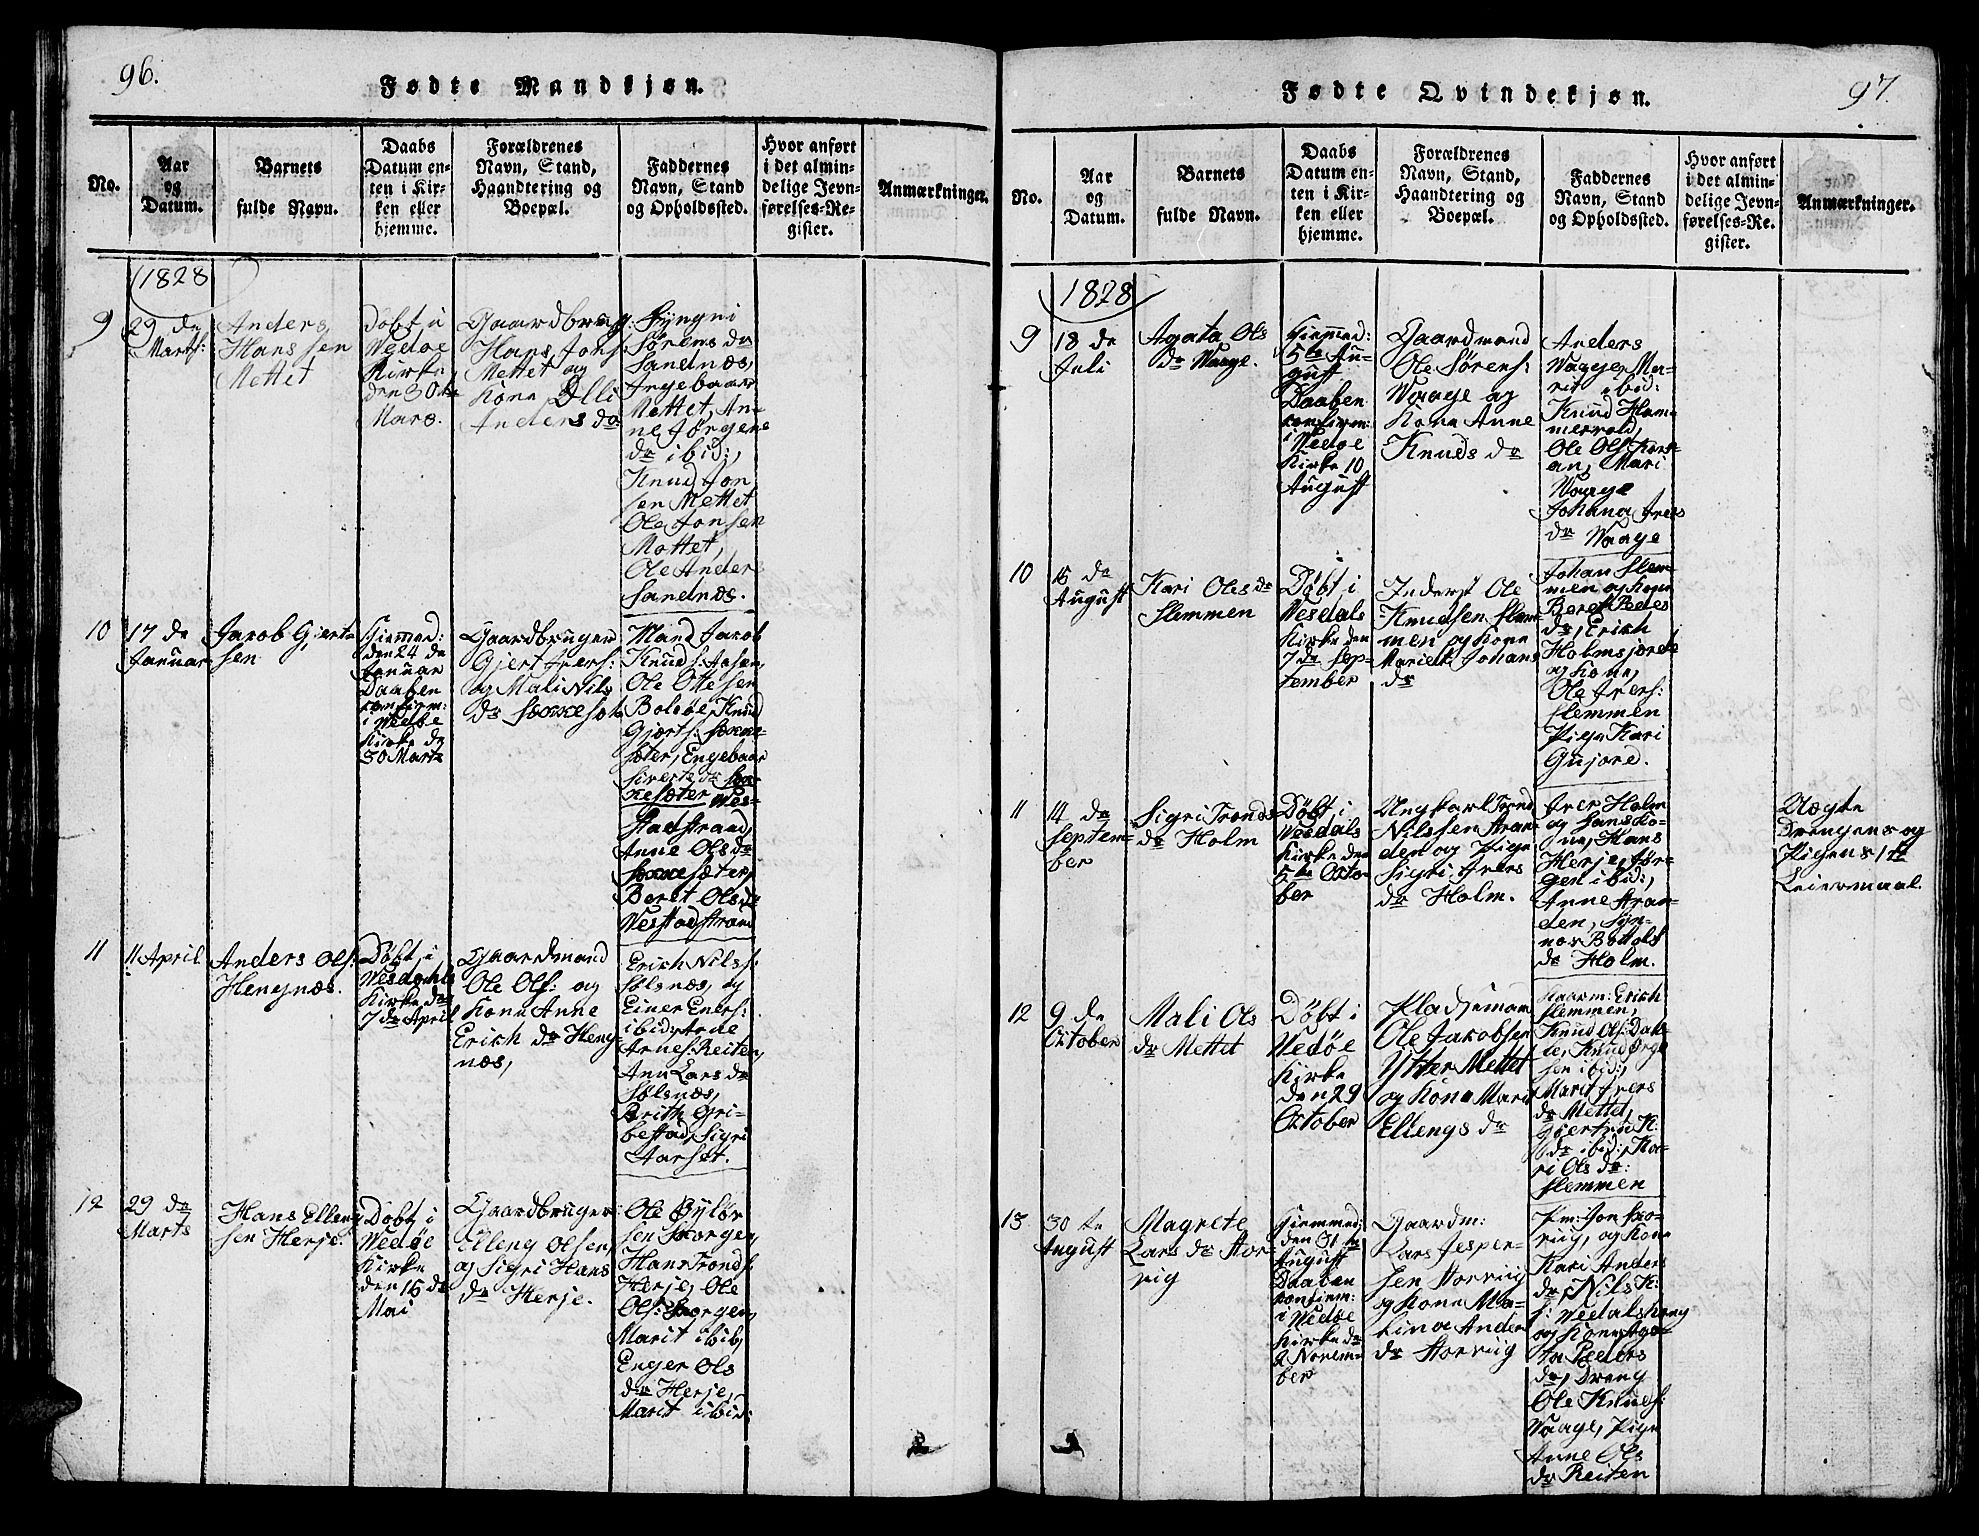 96.
Fødte Mandkjøn.
No.
Aar
og
Datum.
Barnets
fulde Navn.
Daabs
Datum en-
ten i Kir-
ken eller
hjemme.
Forældrenes
Navn, Stand,
Haandtering og
Boepæl.
Faddernes
Navn, Stand
og Opholdssted.
Hvor anført
i det almin-
delige Jevn-
førelses-Re-
gister.
Anmærkninger.
1828
9
29 de
Marts:
Anders
Hanssen
Mettet
Døbt i
Wedøe
Kirke
den 30te
Mars.
Gaardbrug:
Hans Jons:
Mettet og
Kone Elli
Anders dr
Syngni
Sørens dr
Sandnæs,
Ingebaar
Mettet, An-
ne Jørgens
dr ibid:,
Knud Jon
sen Mettet
Ole Jonsen
Mettet,
Ole Anders
Sandnæs.
10
17 de
Januar
Jacob Gjert
sen
Hiemmed:
den 24 de
Januar
Daaben
confirm:
i Wedøe
Kirke de
30 Marts
Gaardbruger
Gjert Ivers:
og Mali Nils
dr
Mand Jacob
Knud s:
Ole Ottesen
Bolsøe, Knud
Gjerts:
sæter, Engebaar
Siverts dr
Wes-
stadstrand,
Anne Ols dr
Beret Ols dr
Westadstrand
11
11 April
Anders Ols:
Hengnæs.
Døbt i
Wesdahls
Kirke den
7 de April
Gaardmand
Ole Ols: og
Kone Anne
Erich dr Heng
næs,
Erich Nilss:
Sølsnæs, og
Einer Eners:
ibid: Arne
Arnes: Reiten,
Ann Lars dr
Sølsnæs,
Brith Gri-
bestad, Sigri
Aarset.
12
29 de
Marts
Hans Elleng
sen Herje.
Døbt i
Wedøe
Kirke
den 15 de
Mai
Gaardbruger
Elleng Olsen,
og Sigri Hans
dr Herje.
Ole
sen
Hans Tronds:
Herje, Ole
Ols:
Marit ibid,
Enger Ols
dr Herje,
Marit ibid:
97.
Fødte Qvindekjøn.
No.
Aar
og
Datum.
Barnets
fulde Navn.
Daabs
Datum en-
ten i Kir-
ken eller
hjemme.
Forældrenes
Navn, Stand,
Haandtering og
Boepæl.
Faddernes
Navn, Stand
og Opholdssted.
Hvor anført
i det almin-
delige Jevn-
førelses-Re-
gister.
Anmærkninger.
1828
9
18 de
Juli
Agata Ols
dr Waage.
Hiemmed:
5te Au-
gust
Daaben
confirm:
i Wedøe
Kirke 10
August
Gaardmand
Ole Sørens:
Waage og
Kone Anne
Knuds dr
Anders
Waage, Ma-
rit ibid:
Knud Ham
mervold,
Ole Ols:
Mari
Waage
Johana Ivers
dr Waage
10
15 de
August
Kari Ols dr
Slemmen
Døbt i
Wesdals
Kirke den
7 de Sep-
tember
Inderst Ole
Knudsen Slem
men og Kone
Marit Johans
dr
Johan Slem-
men og Kone
Beret Peders
dr, Erich
Holmsjorde
og Kone,
Ole Ivers:
Slemmen
Pige Kari
Gujord.
11
14 de
Septem-
ber
Sigri Tronds
dr Holm
Døbt i
Wesdals
Kirke den
5te Octo-
ber
Ungkarl Trond
Nilssen Stran
den og Pige
Sigri Ivers
dr Holm.
Iver Holm
og hans Ko-
ne, Hans
Herje, Jør-
gen ibid:,
Anne Stran-
den, Syn-
nov Bottols
dr Holm.
Uægte
Drengens og
Pigens 1te
Leiermaal.
12
9 de
October
Mali Ols
dr Mettet
Døbt i
Wedøe
Kirke
den 29
October
Pladsemand
Ole Jacobsen
Ytter Mettet
og Kone Marit
Ellengs dr
Gaarm: Erich
Slemmen,
Knud Ols:
Knud
sen ibid:,
Marit Ivers
dr Mettet,
Gjertrud K:
dr ibid:, Ka-
ri Ols dr:
Slemmen
13
30 te
August
Magrete
Lars dr Stor-
vig
Hiemmed:
den 31 te
August
Daaben
confirm:
i Wedøe
Kirke de
2 Novem-
ber
Gaardm:
Lars Jesper-
sen Storvig
og Kone Ma-
lina Anders
dr Storvig
Pm: Jon Sto-
rvig, og Kone
Kari Anders
dr, Nils K:
s: Wedalshoug
og Kone Aga-
ta Peders
dr, Dreng
Ole Knuds:
Waage, Pige
Anne Ols
dr Reiten